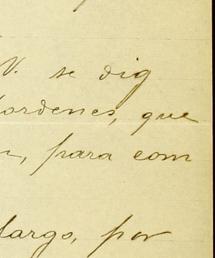 V. se dig
ordenes, que
, para com
largo, por